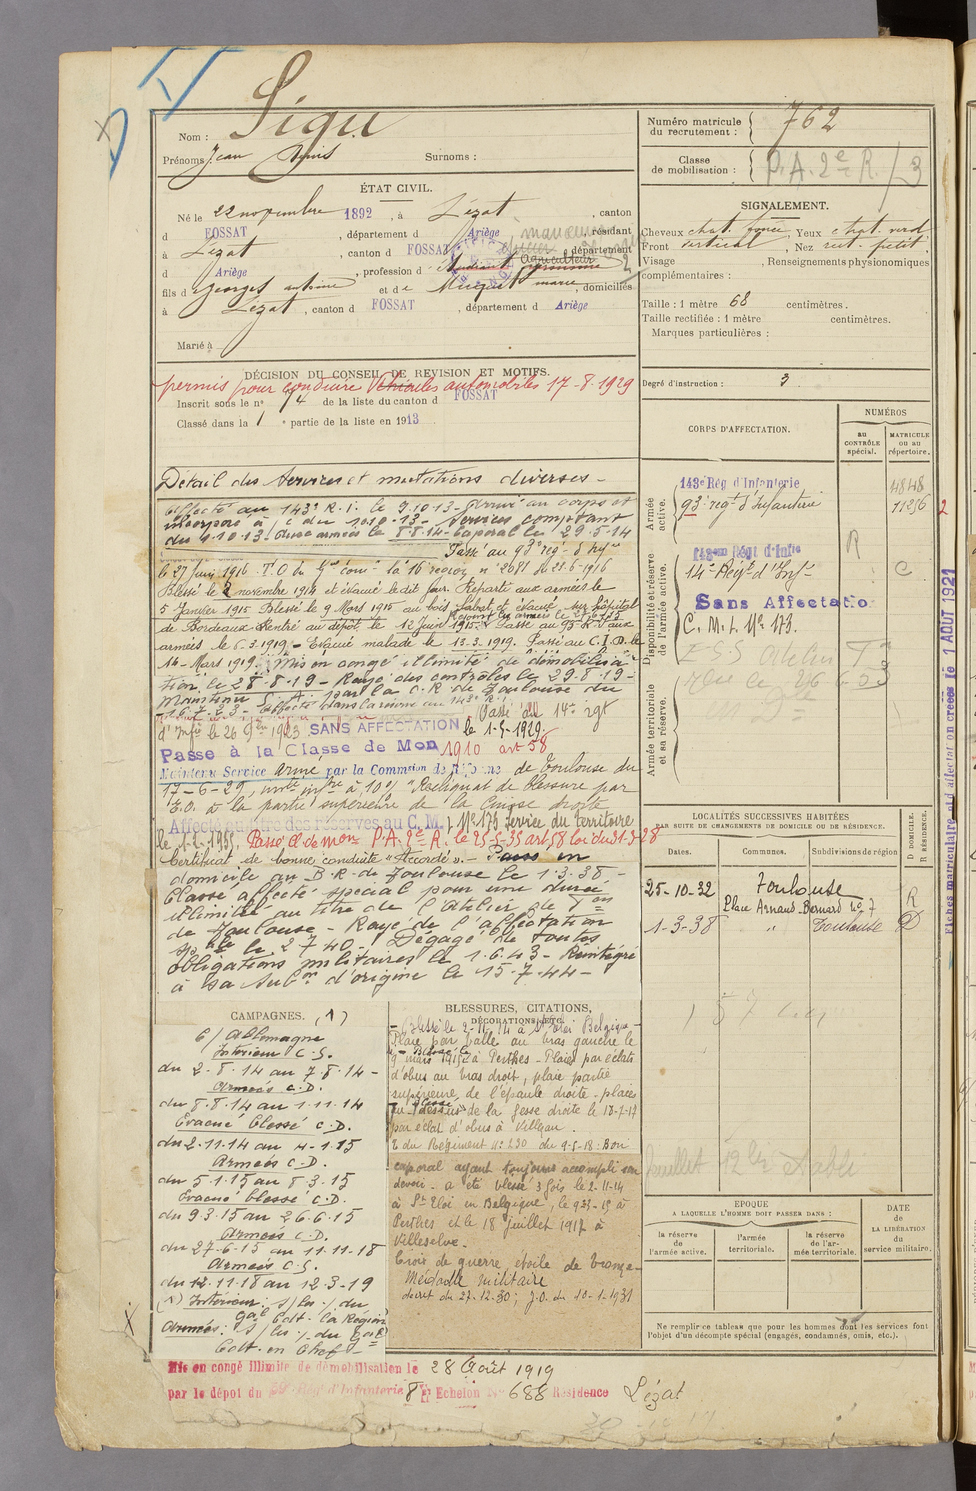 Nom : Sigu
Numéro matricule du recrutement : 762
Prénoms Jean Denis Surnoms :
Classe de mobilisation : P.A. 2e R. / 3
ÉTAT CIVIL.
Né le 22 novembre 1892, à Lézat, canton
d FOSSAT, département d Ariège résidant
à Lézat, canton d FOSSAT, département
d Ariège, profession d Agriculteur
fils d Georges antoine et de marie, domiciliés
à Lézat, canton d FOSSAT, département d Ariège
Marié à
SIGNALEMENT.
Cheveux chat. foncé, Yeux chat. verd
Front vertical, Nez rect. petit
Visage , Renseignements physionomiques
complémentaires :
Taille : 1 mètre 68 centimètres.
Taille rectifiée : 1 mètre centimètres.
Marques particulières :
DÉCISION DU CONSEIL DE REVISION ET MOTIFS.
permis pour conduire Véhicules automobiles 17-8-1929
Inscrit sous le n° 74 de la liste du canton d FOSSAT
Classé dans la 1 e partie de la liste en 1913
Degré d'instruction : 3
CORPS D'AFFECTATION.
NUMÉROS
au CONTRÔLE spécial.
MATRICULE ou au répertoire.
Armée active.
143e Rég d'Infanterie 4848
93e regt d'Infanterie 11256
Disponibilité et réserve de l'armée active.
143eme Régt d'Infie R
14e Régt d'Infie C
Sans Affectatio
C. M. I. No 173.
Armée territoriale et sa réserve.
Détail des Services et mutations diverses -
affecté au 143e R.I. le 9.10.13 - Arrivé au corps et
incorporé à / c du 10.10.13 - Services comptant
du 1.10.13. Aux armées le 8.8.14 - Caporal le 29.5.14
Passé au 93e regt d'Infie
le 27 Juin 1916 T.O du Gal comt la 16e region no 2681 du 21-6-1916
Blessé le 2 novembre 1914 et évacué le dit jour. Reparti aux armées le
5 Janvier 1915 Blessé le 9 Mars 1915 au bois Sabot et évacué sur hôpital
de Bordeaux Rentré au dépôt le 12 Juin 1915
armées le 6.3.1919 - Evacué malade le 13.3.1919. Passé au C.I.D. le
14 Mars 1919. Mis en congé illimité de démobilisa-
tion le 28-8-19 - Rayé des contrôles le 29.8.19 -
Maintenu S.A. par la C.R. de Toulouse du
Passé au 14e rgt
d'Infie le 26 9bre 1923 SANS AFFECTATION le 1-5-1929
Passe à la Classe de Mon 1910 art 58
Maintenu Service Armé par la Commsion de Réforme de Toulouse du
17-6-29, invte infre à 10% "Reliquat de blessure par
E.O. à la partie supérieure de la Cuisse droite
Affecté au titre des réserves au C.M.I No 173 Service du Territoire
Passé cl de mon P.A. 2e R. le 25-5-35 art 58 loi du 31-3-28
Certificat de bonne conduite "Accordé". - Passé en
domicile au B.R. de Toulouse le 1.3.38 -
Classé affecté spécial pour une durée
illimitée au titre de l'Atelier de Fon
de Toulouse - Rayé de l'affectation
spale le 2.7.40 - Dégagé de toutes
obligations militaires le 1.6.43 - Réintégré
à sa Subon d'origine le 15.7.44 -
LOCALITÉS SUCCESSIVES HABITÉES
PAR SUITE DE CHANGEMENTS DE DOMICILE OU DE RÉSIDENCE.
Dates. Communes. Subdivisions de région
D DOMICILE. R RÉSIDENCE.
25-10-32 Toulouse R
Place Arnaud-Bernard No 7
1-3-38 " Toulouse D
Fiches matriculaire et d'affectation créées le 1 AOUT 1921
CAMPAGNES. (1)
c/ Allemagne
Intérieur C.S.
du 2.8.14 au 7.8.14 -
Armées C.D.
du 8.8.14 au 1.11.14
Evacué blessé C.D.
du 2.11.14 au 4.1.15
Armées C.D.
du 5.1.15 au 8.3.15
Evacué blessé C.D.
du 9.3.15 au 26.6.15
Armées C.D.
du 27.6.15 au 11.11.18
Armées C.S.
du 12.11.18 au 12.3.19
(1) Intérieur : s/ les / du
Gal Cdt. la Région
Armées : s/ les / du Gal
Cdt. en Chef -
BLESSURES, CITATIONS,
DÉCORATIONS, ETC.
- Blessé le 2-11-14 à St Eloi Belgique -
Plaie par balle au bras gauche le
- Blessé le
9 mars 1915 à Perthes - Plaies par éclats
d'obus au bras droit, plaie partie
supérieure de l'épaule droite - plaies
au dessus de la fesse droite le 18-7-17
par éclat d'obus à Villeau.
C du Régiment No 230 du 9-5-18 : Bon
caporal ayant toujours accompli son
devoir - a été blessé 3 fois le 2-11-14
à St Eloi en Belgique, le 9-3-15 à
Perthes et le 18 juillet 1917 à
Villeselve -
Croix de guerre, étoile de bronze -
Médaille militaire
décret du 27-12-30 ; J.O. du 10-1-1931
Juillet
EPOQUE
A LAQUELLE L'HOMME DOIT PASSER DANS :
la réserve de l'armée active.
l'armée territoriale.
la réserve de l'armée territoriale.
DATE de LA LIBÉRATION du service militaire.
Ne remplir ce tableau que pour les hommes dont les services font
l'objet d'un décompte spécial (engagés, condamnés, omis, etc.).
Mis en congé illimité de démobilisation le 28 Août 1919
par le dépôt du Rég d'Infanterie 8e Echelon No 688 Résidence Lézat